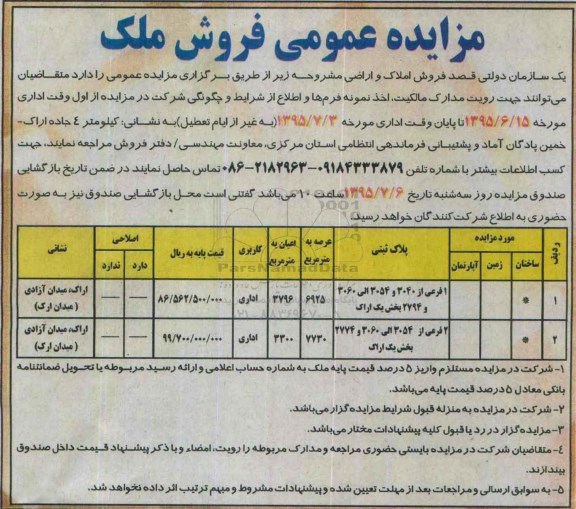 مزایده عمومی فروش ملک
یک سازمان دولتی قصد فروش املاک و اراضی مشروحه زیر از طریق برگزاری مزایده عمومی را دارد متقاضیان
می‌توانند جهت رویت مدارک مالکیت، اخذ نمونه فرم‌ها و اطلاع از شرایط و چگونگی شرکت در مزایده از اول وقت اداری
مورخه ۱۳۹۵/۶/۱۵ تا پایان وقت اداری مورخه ۱۳۹۵/۷/۳ (به غیر از ایام تعطیل) به نشانی: کیلومتر ۴ جاده اراک-
خمین پادگان آماد و پشتیبانی فرماندهی انتظامی استان مرکزی، معاونت مهندسی/ دفتر فروش مراجعه نمایند. جهت
کسب اطلاعات بیشتر با شماره تلفن ۰۹۱۸۴۳۳۳۸۷۹-۰۸۶-۲۱۸۲۹۶۳ تماس حاصل نمایند در ضمن تاریخ بازگشایی
صندوق مزایده روز سه‌شنبه تاریخ ۱۳۹۵/۷/۶ ساعت ۱۰ می‌باشد. گفتنی است محل بازگشایی صندوق نیز به صورت
حضوری به اطلاع شرکت کنندگان خواهد رسید.
ردیف مورد مزایده پلاک ثبتی عرصه به مترمربع اعیان به مترمربع کاربری قیمت پایه به ریال اصلاحی نشانی
ساختمان زمین آپارتمان دارد ندارد
۱ * ۱ فرعی از ۳۰۴۰ و ۳۰۵۴ الی ۳۰۶۰ ۶۹۲۵ ۳۷۹۶ اداری ۸۶/۵۶۲/۵۰۰/۰۰۰ — — اراک، میدان آزادی
و ۲۷۹۴ بخش یک اراک (میدان ارک)
۲ * ۲ فرعی از ۳۰۵۴ الی ۳۰۶۰ و ۲۷۷۴ ۷۷۳۰ ۳۳۰۰ اداری ۹۹/۷۰۰/۰۰۰/۰۰۰ — — اراک، میدان آزادی
بخش یک اراک (میدان ارک)
ParsNamadData
۱- شرکت در مزایده مستلزم واریز ۵ درصد قیمت پایه ملک به شماره حساب اعلامی و ارائه رسید مربوطه یا تحویل ضمانتنامه
بانکی معادل ۵ درصد قیمت پایه می‌باشد.
۲- شرکت در مزایده به منزله قبول شرایط مزایده گزار می‌باشد.
۳- مزایده گزار در رد یا قبول کلیه پیشنهادات مختار می‌باشد.
۴- متقاضیان شرکت در مزایده بایستی حضوری مراجعه و مدارک مربوطه را رویت، امضاء و با ذکر پیشنهاد قیمت داخل صندوق
بیندازند.
۵- به سوابق ارسالی و مراجعات بعد از مهلت تعیین شده و پیشنهادات مشروط و مبهم ترتیب اثر داده نخواهد شد.